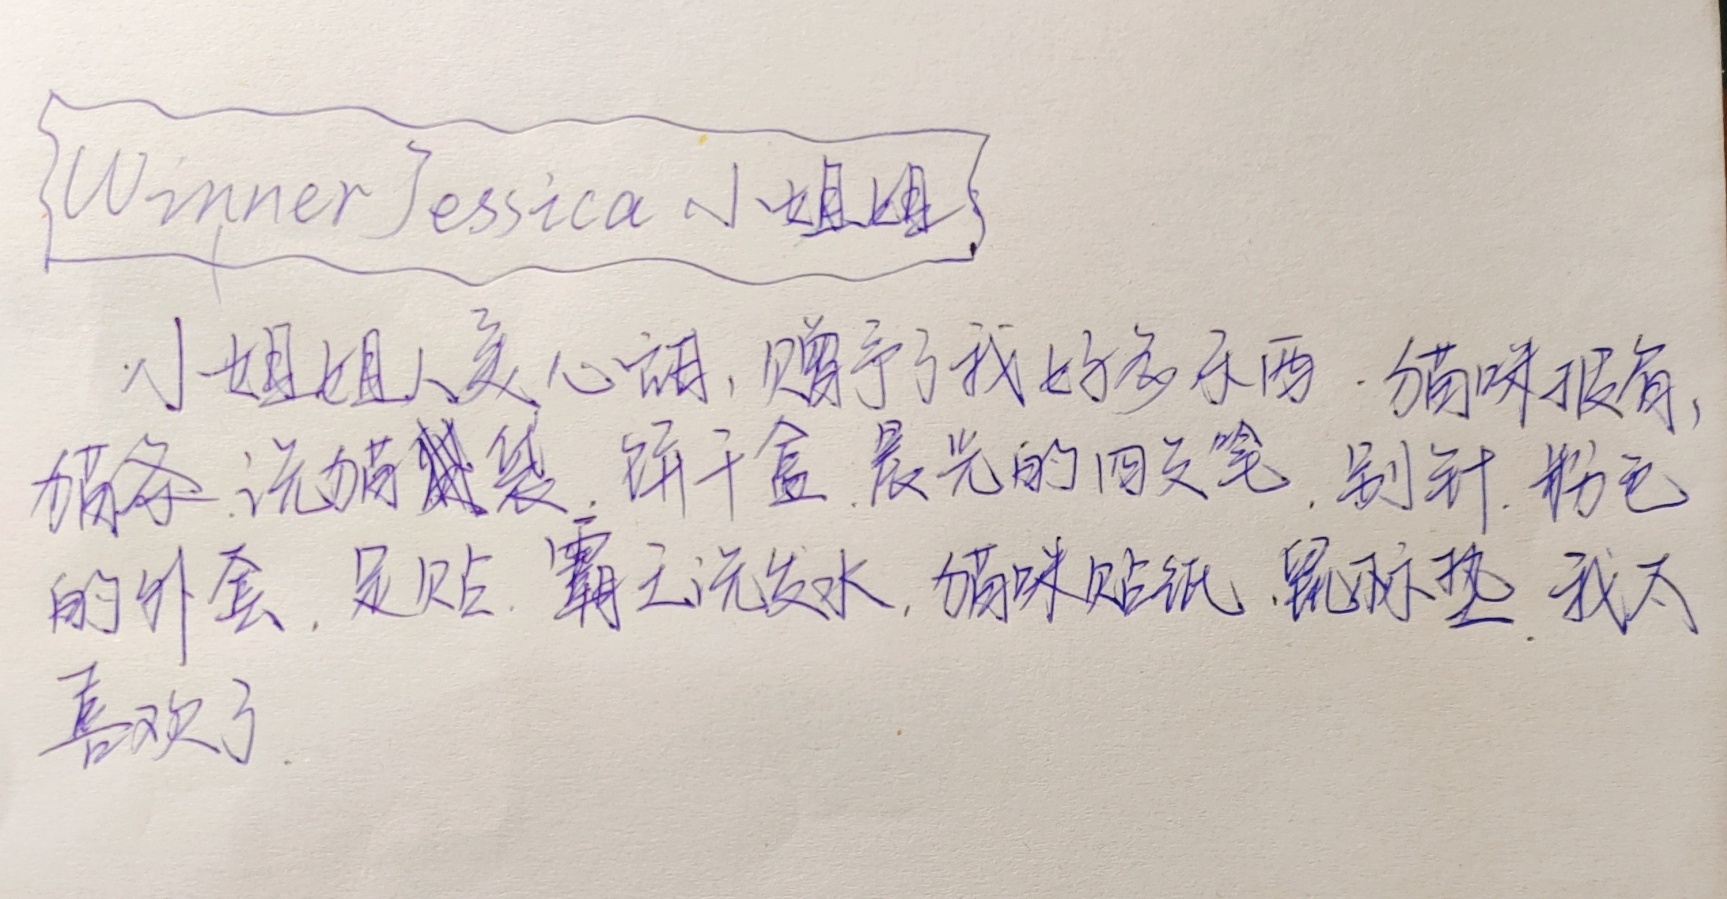 Winner Jessica 小姐姐
小姐姐人美心甜,赠予了我好多东西.猫咪报有,
猫条.洗猫袋.饼干盒.晨光的四支笔.别针.粉色
的外套.足贴.霸王洗发水.猫咪贴纸.鼠标垫.我太
喜欢了.